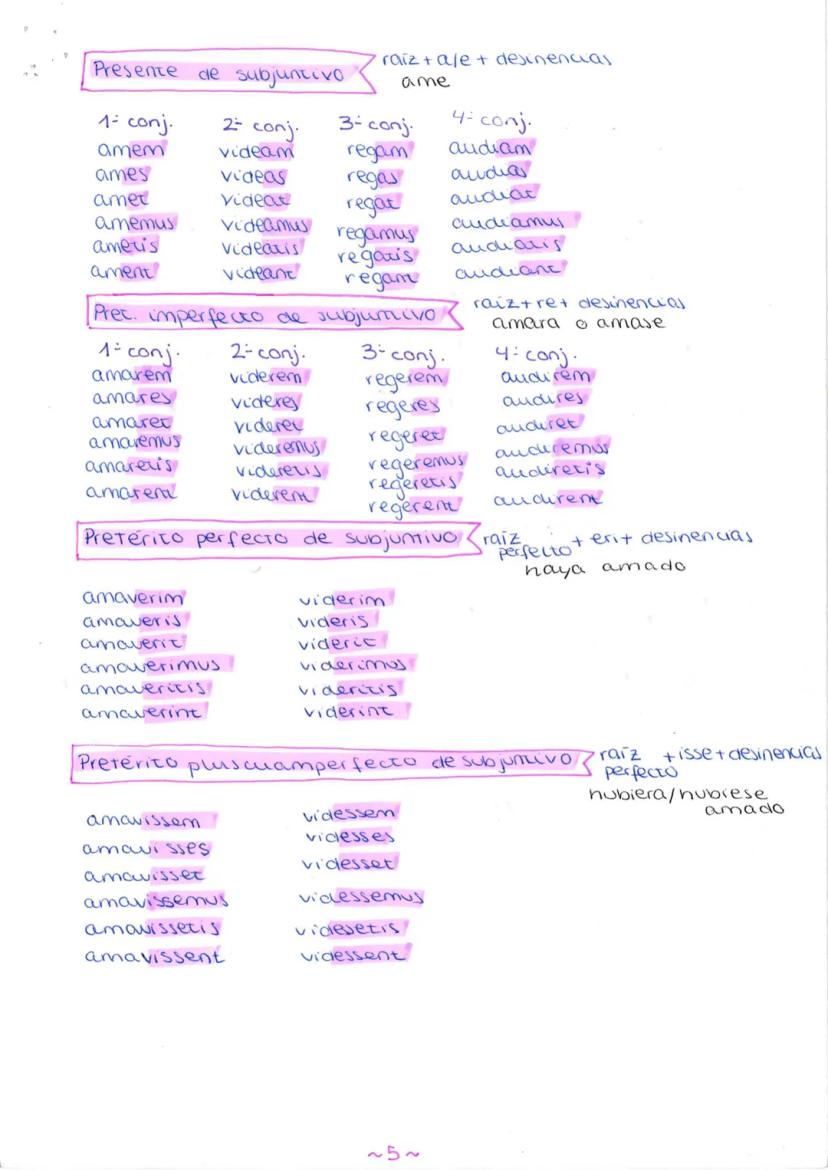 Presente de subjuntivo raíz + a/e + desinencias
ame
1ª conj. 2ª conj. 3ª conj. 4ª conj.
amem videam regam audiam
ames videas regas audias
amet videat regat audiat
amemus videamus regamus audiamus
ametis videatis regatis audiatis
ament videant regant audiant
Pret. imperfecto de subjuntivo raíz + re + desinencias
amara o amase
1ª conj. 2ª conj. 3ª conj. 4ª conj.
amarem viderem regerem audirem
amares videres regeres audires
amaret videret regeret audiret
amaremus videremus regeremus audiremus
amaretis videretis regeretis audiretis
amarent viderent regerent audirent
Pretérito perfecto de subjuntivo raíz perfecto + eri + desinencias
haya amado
amaverim viderim
amaveris videris
amaverit viderit
amaverimus viderimus
amaveritis videritis
amaverint viderint
Pretérito pluscuamperfecto de subjuntivo raíz perfecto + isse + desinencias
hubiera/hubiese
amado
amavissem videssem
amavisses videsses
amavisset videsset
amavissemus videssemus
amavissetis videsetis
amavissent videssent
~5~